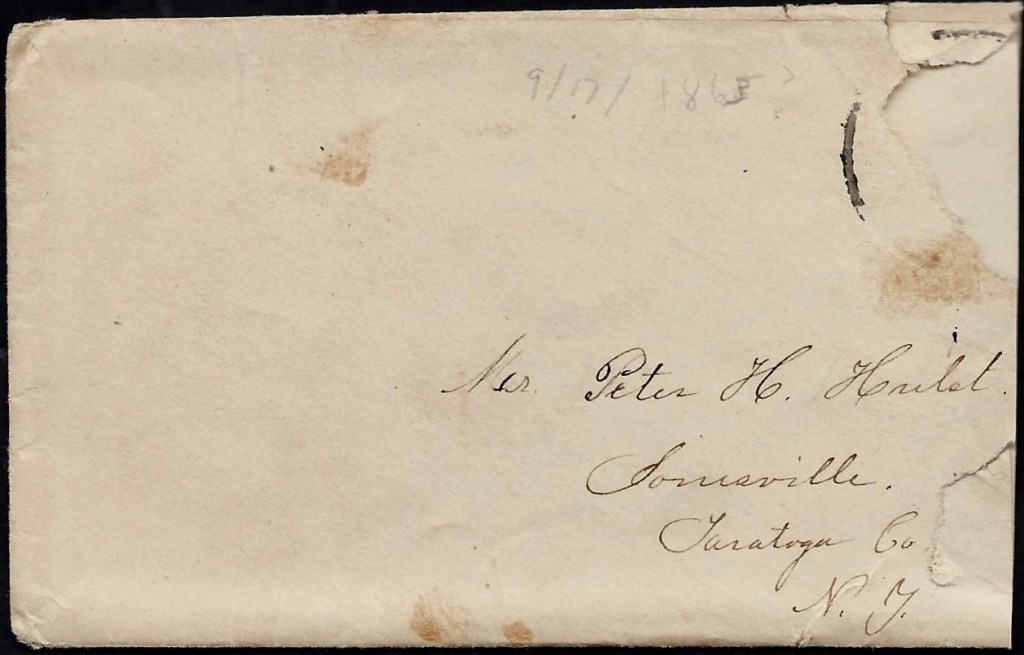 9/17/1863?
Mr. Peter H. Hulst.
Jonesville.
Saratoga Co
N. Y.